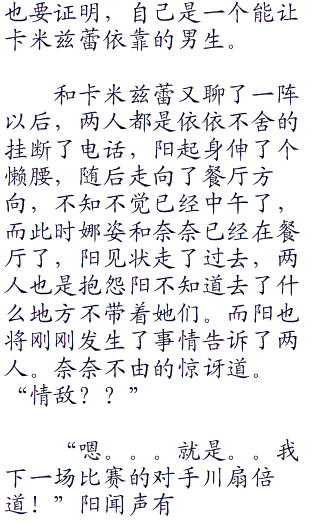 也要证明，自己是一个能让
卡米兹蕾依靠的男生。
和卡米兹蕾又聊了一阵
以后，两人都是依依不舍的
挂断了电话，阳起身伸了个
懒腰，随后走向了餐厅方
向，不知不觉已经中午了，
而此时娜姿和奈奈已经在餐
厅了，阳见状走了过去，两
人也是抱怨阳不知道去了什
么地方不带着她们。而阳也
将刚刚发生了事情告诉了两
人。奈奈不由的惊讶道。
“情敌？？”
“嗯。。。就是。。我
下一场比赛的对手川扇倍
道！”阳闻声有